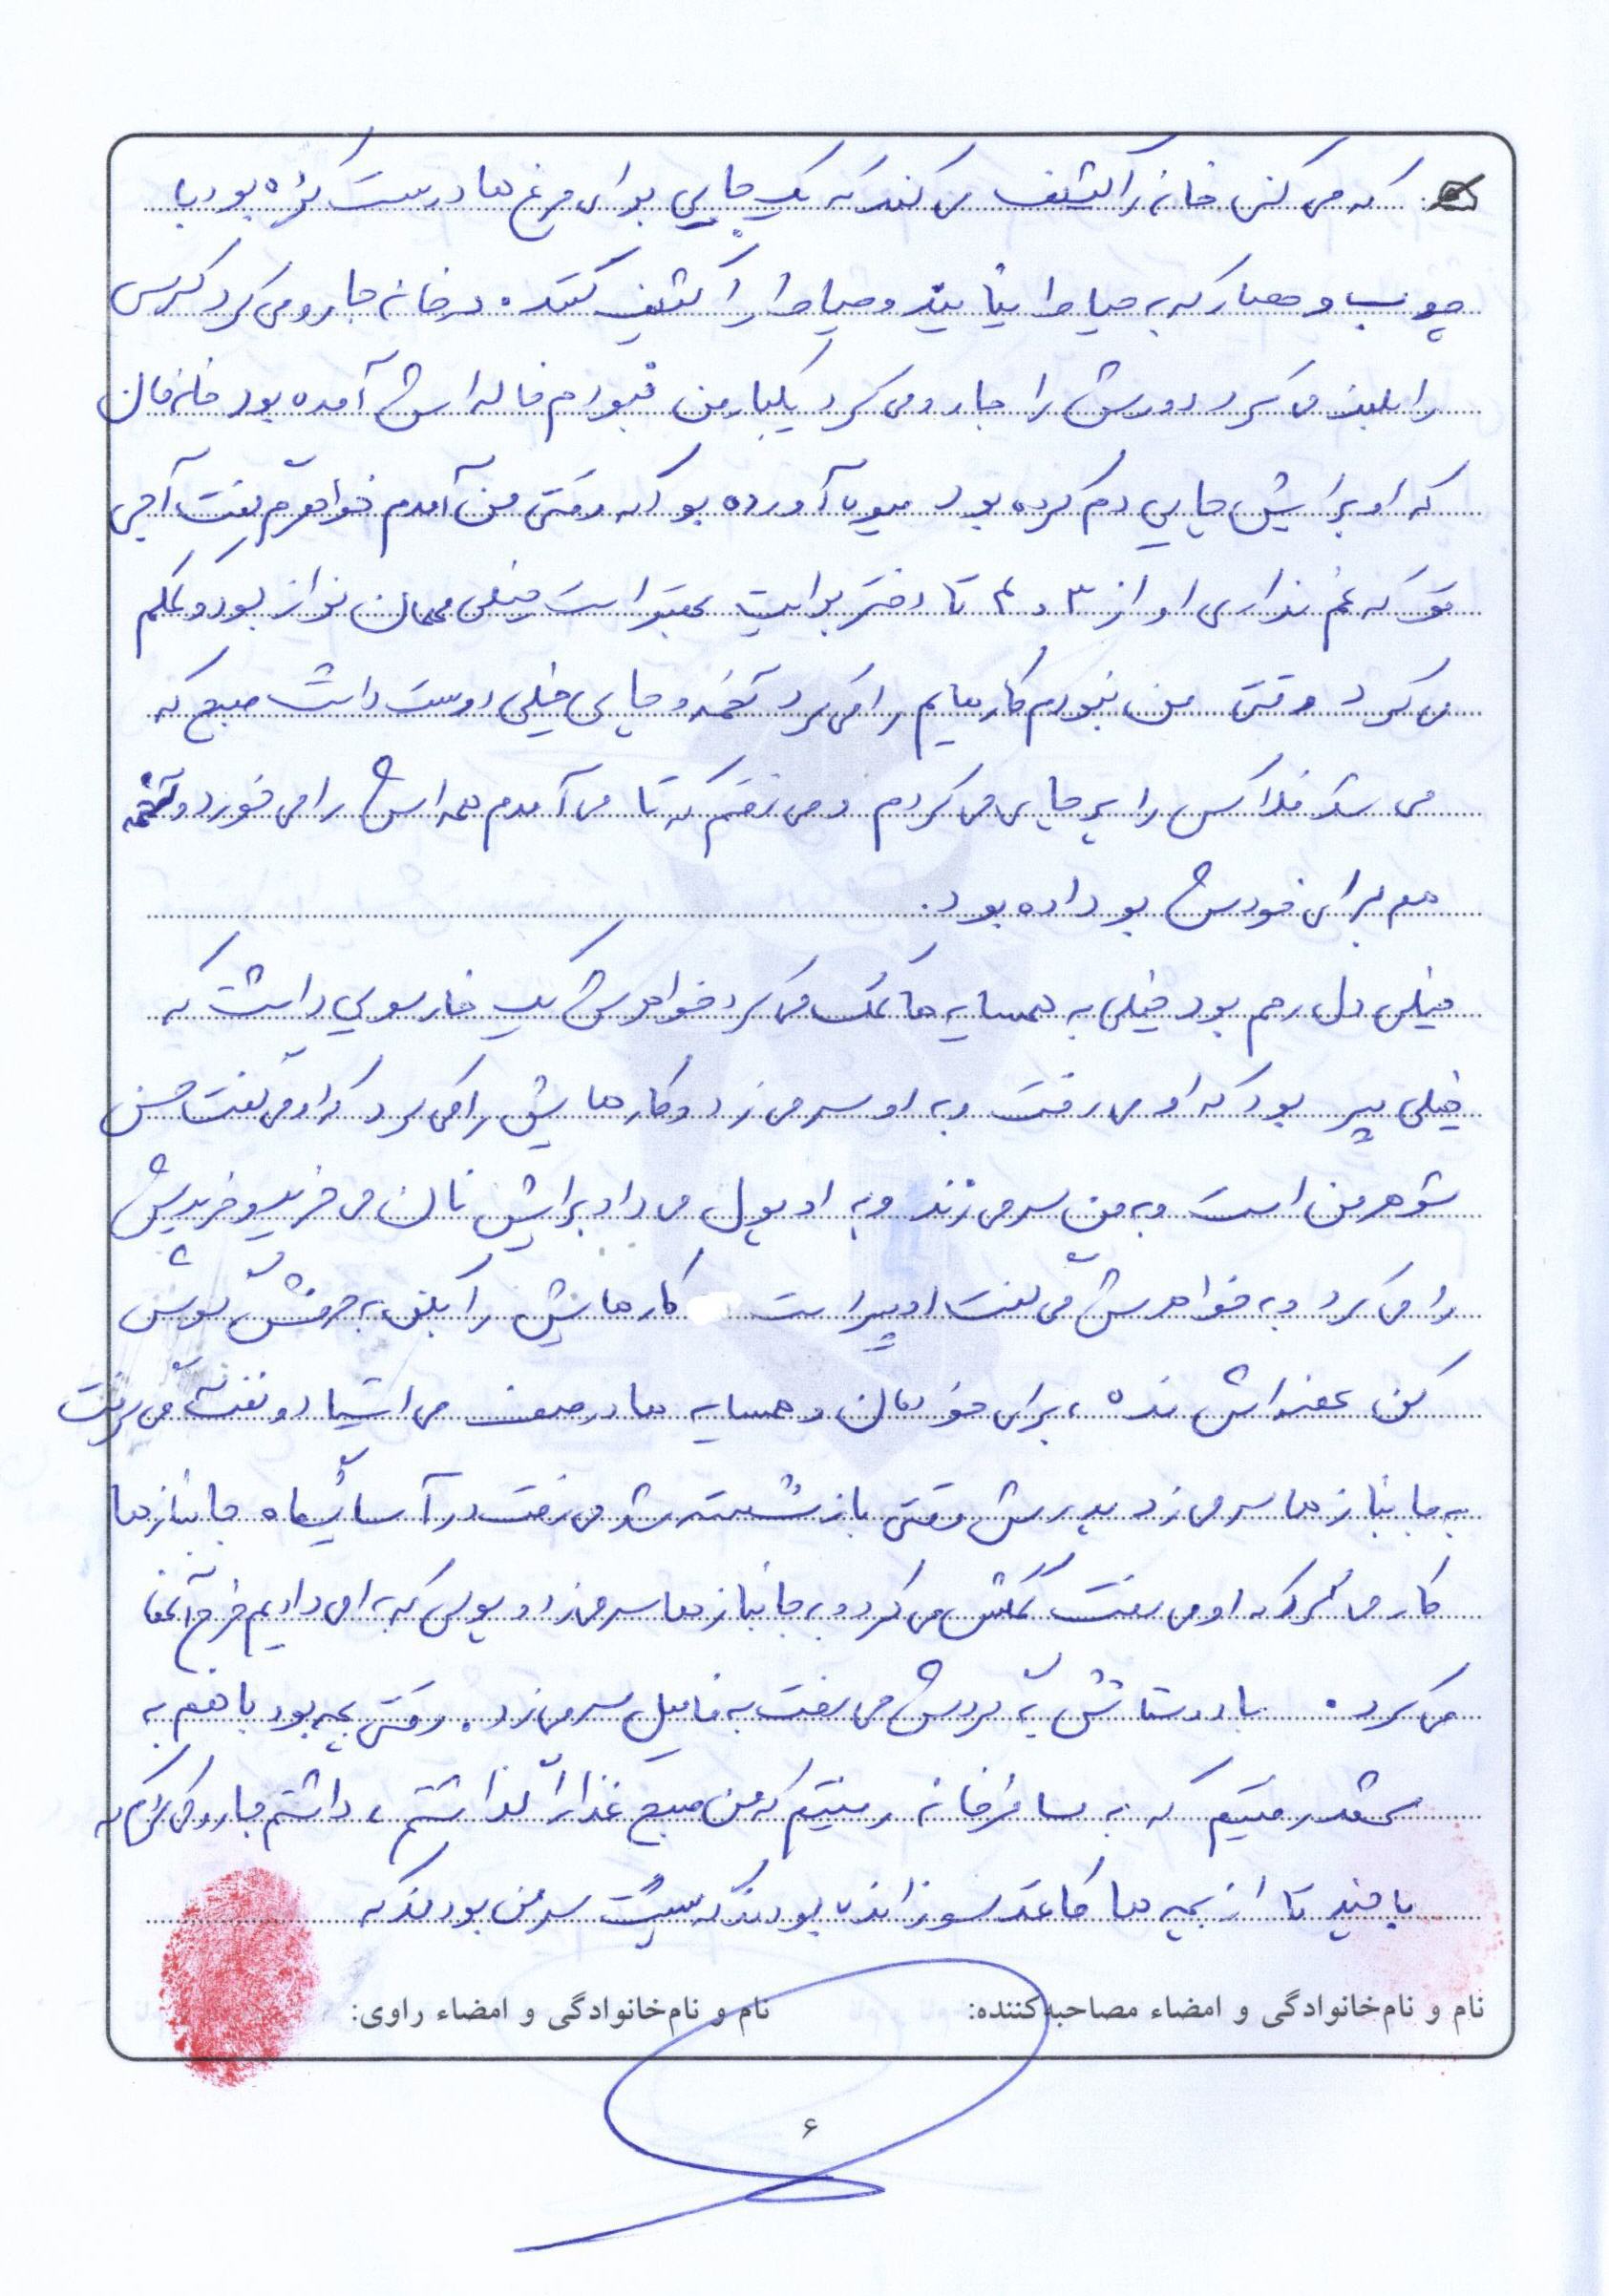 که می کنی خانه را کثیف می کنند که یک جایی برای مرغ ها درست کرده بود با
چوب و حصار که به حیاط نیایند و حیاط را کثیف کنند. در خانه جارو می کرد کرسی
را بلند می کرد دورش را جارو می کرد یکبار من نبودم خاله اش آمده بود خانه مان
که او برایش چایی دم کرده بود میوه آورده بود که وقتی من آمدم خواهرم گفت آجی
تو که غم نداری او از ۳ و ۴ تا دختر برایت بهتر است خیلی مهمان نواز بود و کمکم
می کرد وقتی من نبودم کارهایم را می کرد تخمه و چایی خیلی دوست داشت صبح که
می شد فلاکس را پر چایی می کردم و می رفتم که تا می آمدم همه اش را می خورد و تخمه
هم برای خودش بو داده بود.
خیلی دل رحم بود خیلی به همسایه ها کمک می کرد خواهرش یک خارسویی داشت که
خیلی پیر بود که او می رفت و به او سر می زد و کارهایش را می کرد که او می گفت حسن
شوهر من است و به من سر می زند و به او پول می داد برایش نان می خرید و خریدش
را می کرد و به خواهرش می گفت او پیر است کارهایش را بکن به حرفش گوش
کن عذابش نده، برای خودمان و همسایه ها در صف می ایستاد و نفت می گرفت
به جانبازها سر می زد پدرش وقتی بازنشسته شد می رفت در آسایشگاه جانبازها
کار می کرد که او می رفت کمکش می کرد و به جانبازها سر می زد و پولی که به او می دادیم خرج آنها
می کرد. با دوستانش به گردش می رفت به فامیل سر می زد. وقتی بچه بود با هم به
مشهد رفتیم که به مسافرخانه رفتیم که من صبح غذا را گذاشتم، داشتم جارو می کردم که
با چند تا از بچه ها کاغذ سوزانده بودند که پشت سر من بودند که
نام و نام‌خانوادگی و امضاء مصاحبه‌کننده: نام و نام‌خانوادگی و امضاء راوی:
۶